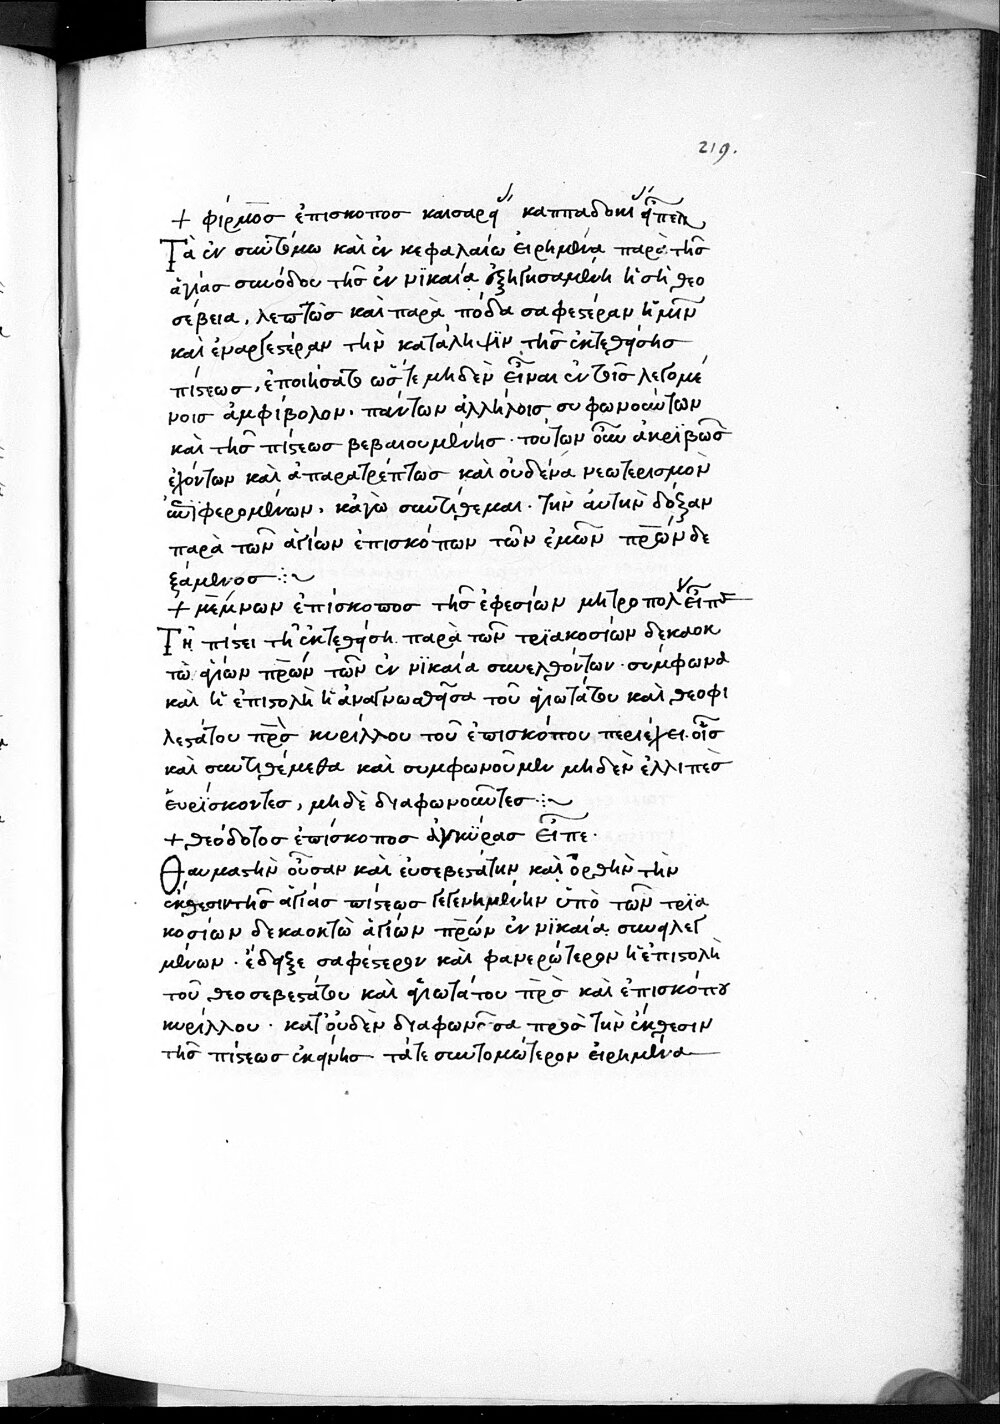 219.
+ φίρμος ἐπισκοπος καισαρ καππαδοκι
Τὰ ἐν συντόμω καὶ ἐν κεφαλαίω εἰρημένα παρὰ τῆς
ἁγίας συνόδου τῆς ἐν νϊκαία ἐξηγησαμένη ἡ σὴ θεο
σέβεια, λεπτῶς καὶ παρὰ πόδα σαφεστέραν ἡμῖν
καὶ ἐναργεστέραν τὴν κατάληψϊν τῆς ἐκτεθείσης
πίστεως, ἐποιήσατο ὥστε μηδὲν εἶναι ἐν τοῖς λεγομέ
νοις ἀμφίβολον. πάντων ἀλλήλοις συμφωνούντων
καὶ τῆς πίστεως βεβαιουμένης. τούτων οὖν ἀκρϊβῶς
ἐχόντων καὶ ἀπαρατρέπτως καὶ οὐδένα νεωτερισμὸν
φερομένων, κἀγὼ συντίθεμαι. τὴν ἀυτὴν δόξαν
παρὰ τῶν ἁγίων ἐπισκόπων τῶν ἐμῶν πρων δε
ξάμενος
+ μέμνων ἐπίσκοπος τῆς ἐφεσίων μητροπολ εἶπε
Τῆ πίστει τῆ ἐκτεθείση παρὰ τῶν τρϊακοσίων δεκαοκ
τὼ ἁγίων πρων τῶν ἐν νϊκαία συνελθόντων. σύμφωνα
καὶ ἡ ἐπιστολὴ ἡ ἀναγνωσθεῖσα τοῦ ἁγιωτάτου καὶ θεοφι
λεστάτου πρς κυρίλλου τοῦ ἐπισκόπου περιέχει. οἷς
καὶ συντιθέμεθα καὶ συμφωνοῦμεν μηδὲν ἐλλιπὲς
ἑυρΐσκοντες, μηδὲ διαφωνοῦντες
+ θεόδοτος ἐπίσκοπος ἀγκύρας εἶπε.
Θαυμαστὴν οὖσαν καὶ ἐυσεβεστάτην καὶ ὀρθὴν τὴν
ἔκθεσιν τῆς ἁγίας πίστεως γεγενημένην ὑπὸ τῶν τρϊα
κοσίων δεκαοκτὼ ἁγίων πρων ἐν νϊκαία συνειλεγ
μένων. ἔδειξε σαφέστερον καὶ φανερώτερον ἡ ἐπιστολὴ
τοῦ θεοσεβεστάτου καὶ ἁγιωτάτου πρς καὶ ἐπισκόπου
κυρίλλου. κατ' οὐδὲν διαφωνοῦσα πρὸς τὴν ἔκθεσιν
τῆς πίστεως ἐκείνης τάτε συντομώτερον εἰρημένα